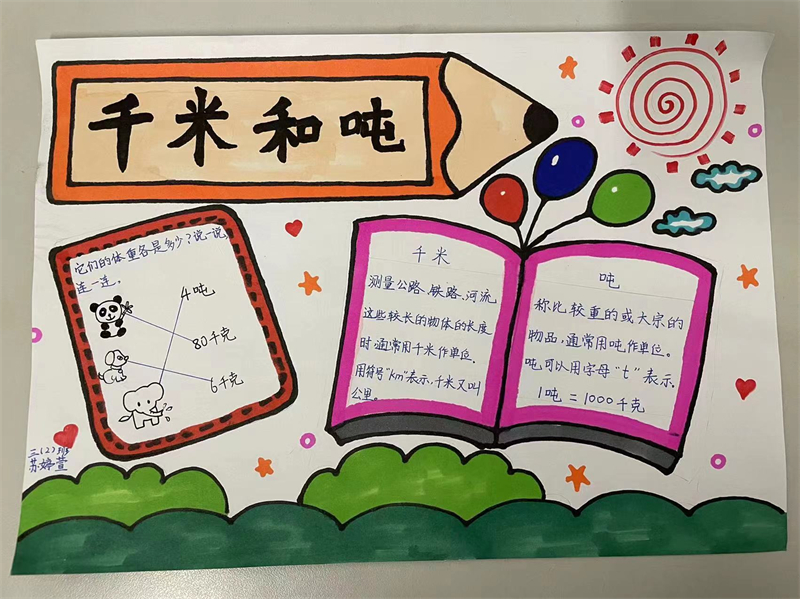 千米和吨
它们的体重各是多少?说一说,
连一连。
4吨
80千克
6千克
三(2)班
苏婷萱
千米
测量公路、铁路、河流
这些较长的物体的长度
时,通常用千米作单位。
用符号"km"表示,千米又叫
公里。
吨
称比较重的或大宗的
物品,通常用吨作单位。
吨可以用字母"t"表示.
1吨=1000千克